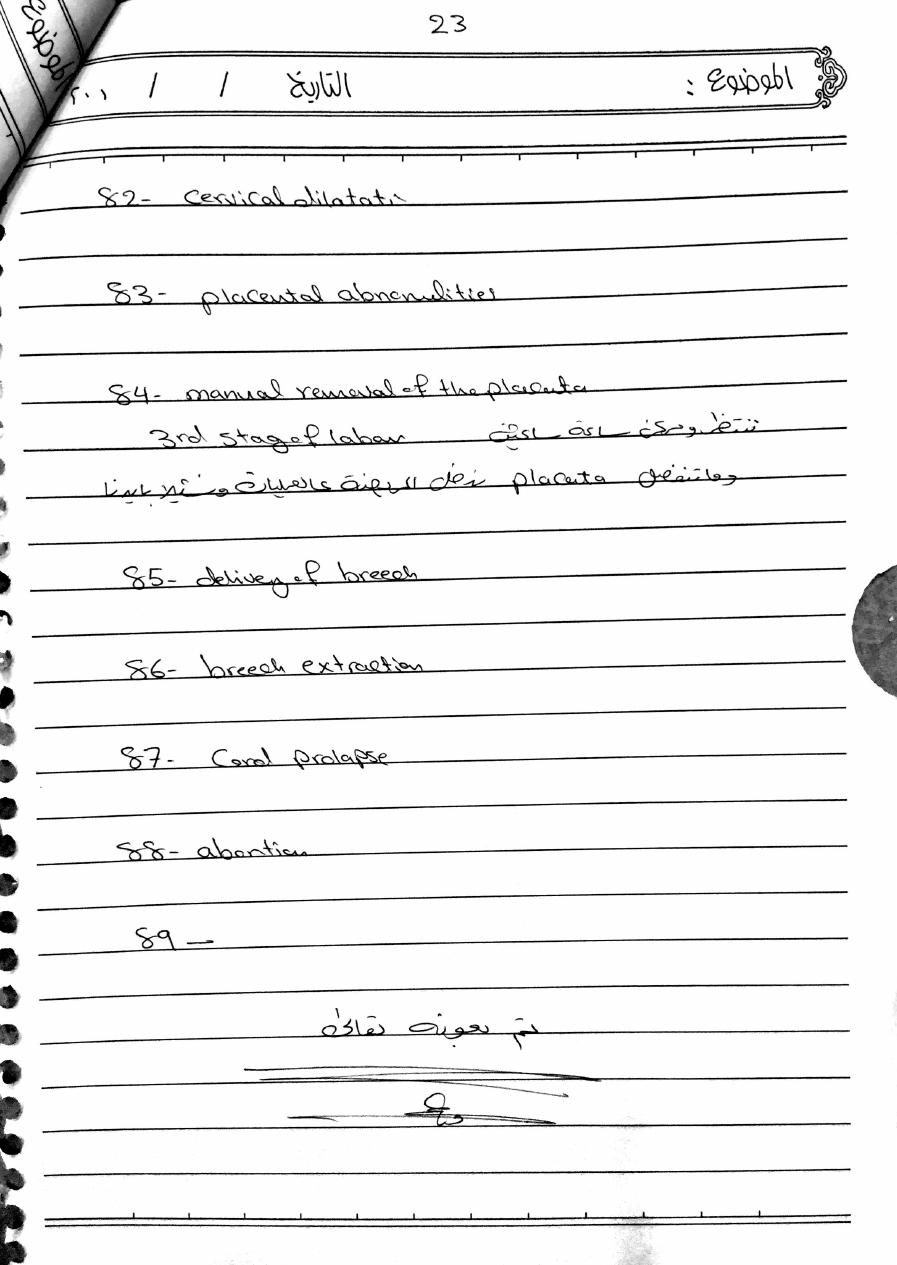 23
الموضوع
الموضوع : التاريخ / / ٢٠٠١
82- cervical dilatati
83- placental abnormalities
84- manual removal of the placenta
3rd stage of labour ننتظر ممكن ساعة ساعتين
وماتنفصل placenta ندخل المريضة عالعمليات
85- delivery of breech
86- breech extraction
87- Cord prolapse
88- abortion
89 —
تم بعونه تعالى